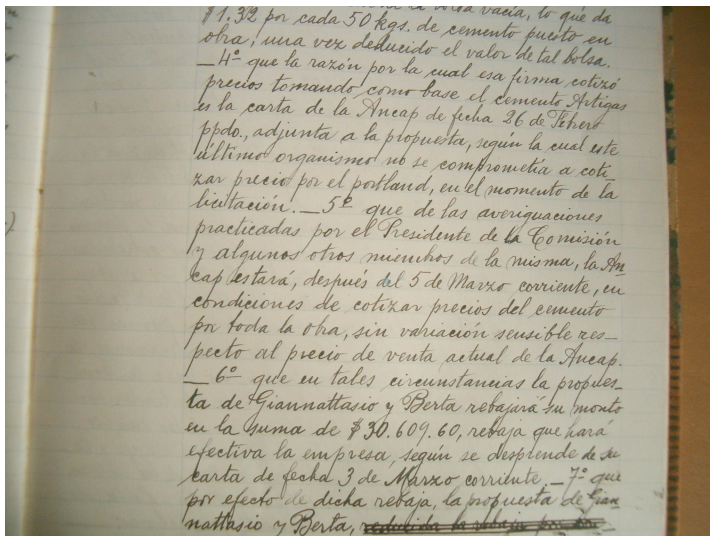 la bolsa vacía, lo que da
$1.32 por cada 50 kgs. de cemento puesto en
obra, una vez deducido el valor de tal bolsa.
_4º que la razón por la cual esa firma cotizó
precios tomando como base el cemento Artigas
es la carta de la Ancap de fecha 26 de Febrero
ppdo., adjunta a la propuesta, según la cual este
último organismo no se comprometía a coti-
zar precio por el portland, en el momento de la
licitación. _5º que de las averiguaciones
practicadas por el Presidente de la Comisión
y algunos otros miembros de la misma, la An
cap estará, después del 5 de Marzo corriente, en
condiciones de cotizar precios del cemento
por toda la obra, sin variación sensible res-
pecto al precio de venta actual de la Ancap.
_6º que en tales circunstancias la propues-
ta de Giannattasio y Berta rebajará su monto
en la suma de $30.609.60, rebaja que hará
efectiva la empresa, según se desprende de su
carta de fecha 3 de Marzo corriente. _7º que
por efecto de dicha rebaja, la propuesta de Gian
nattasio y Berta,